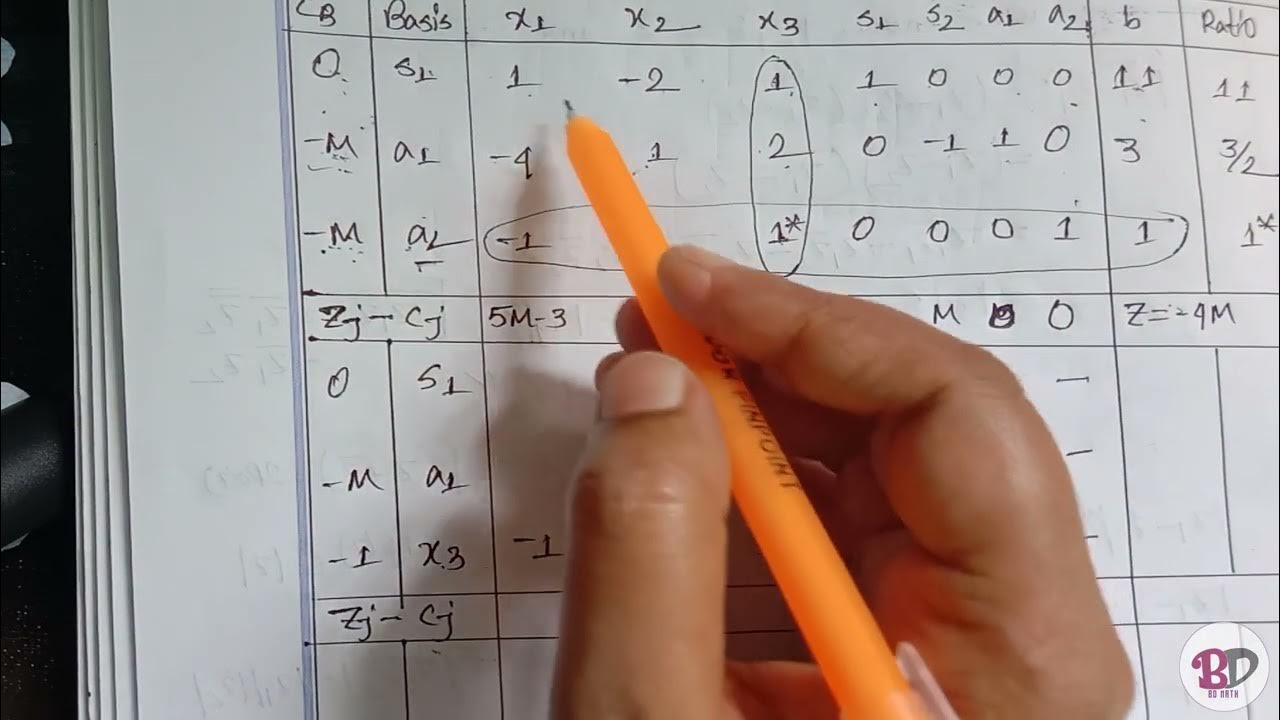 CB Basis x1 x2 x3 s1 s2 a1 a2 b Ratio
0 s1 1 -2 1 1 0 0 0 11 11
-M a1 -4 1 2 0 -1 1 0 3 3/2
-M a2 -1 1* 0 0 0 1 1 1*
Zj - Cj 5M-3 M 0 Z=-4M
0 s1 -
-M a1 -
-1 x3 -1 -
Zj - Cj
PINPOINT
BD
BD MATH